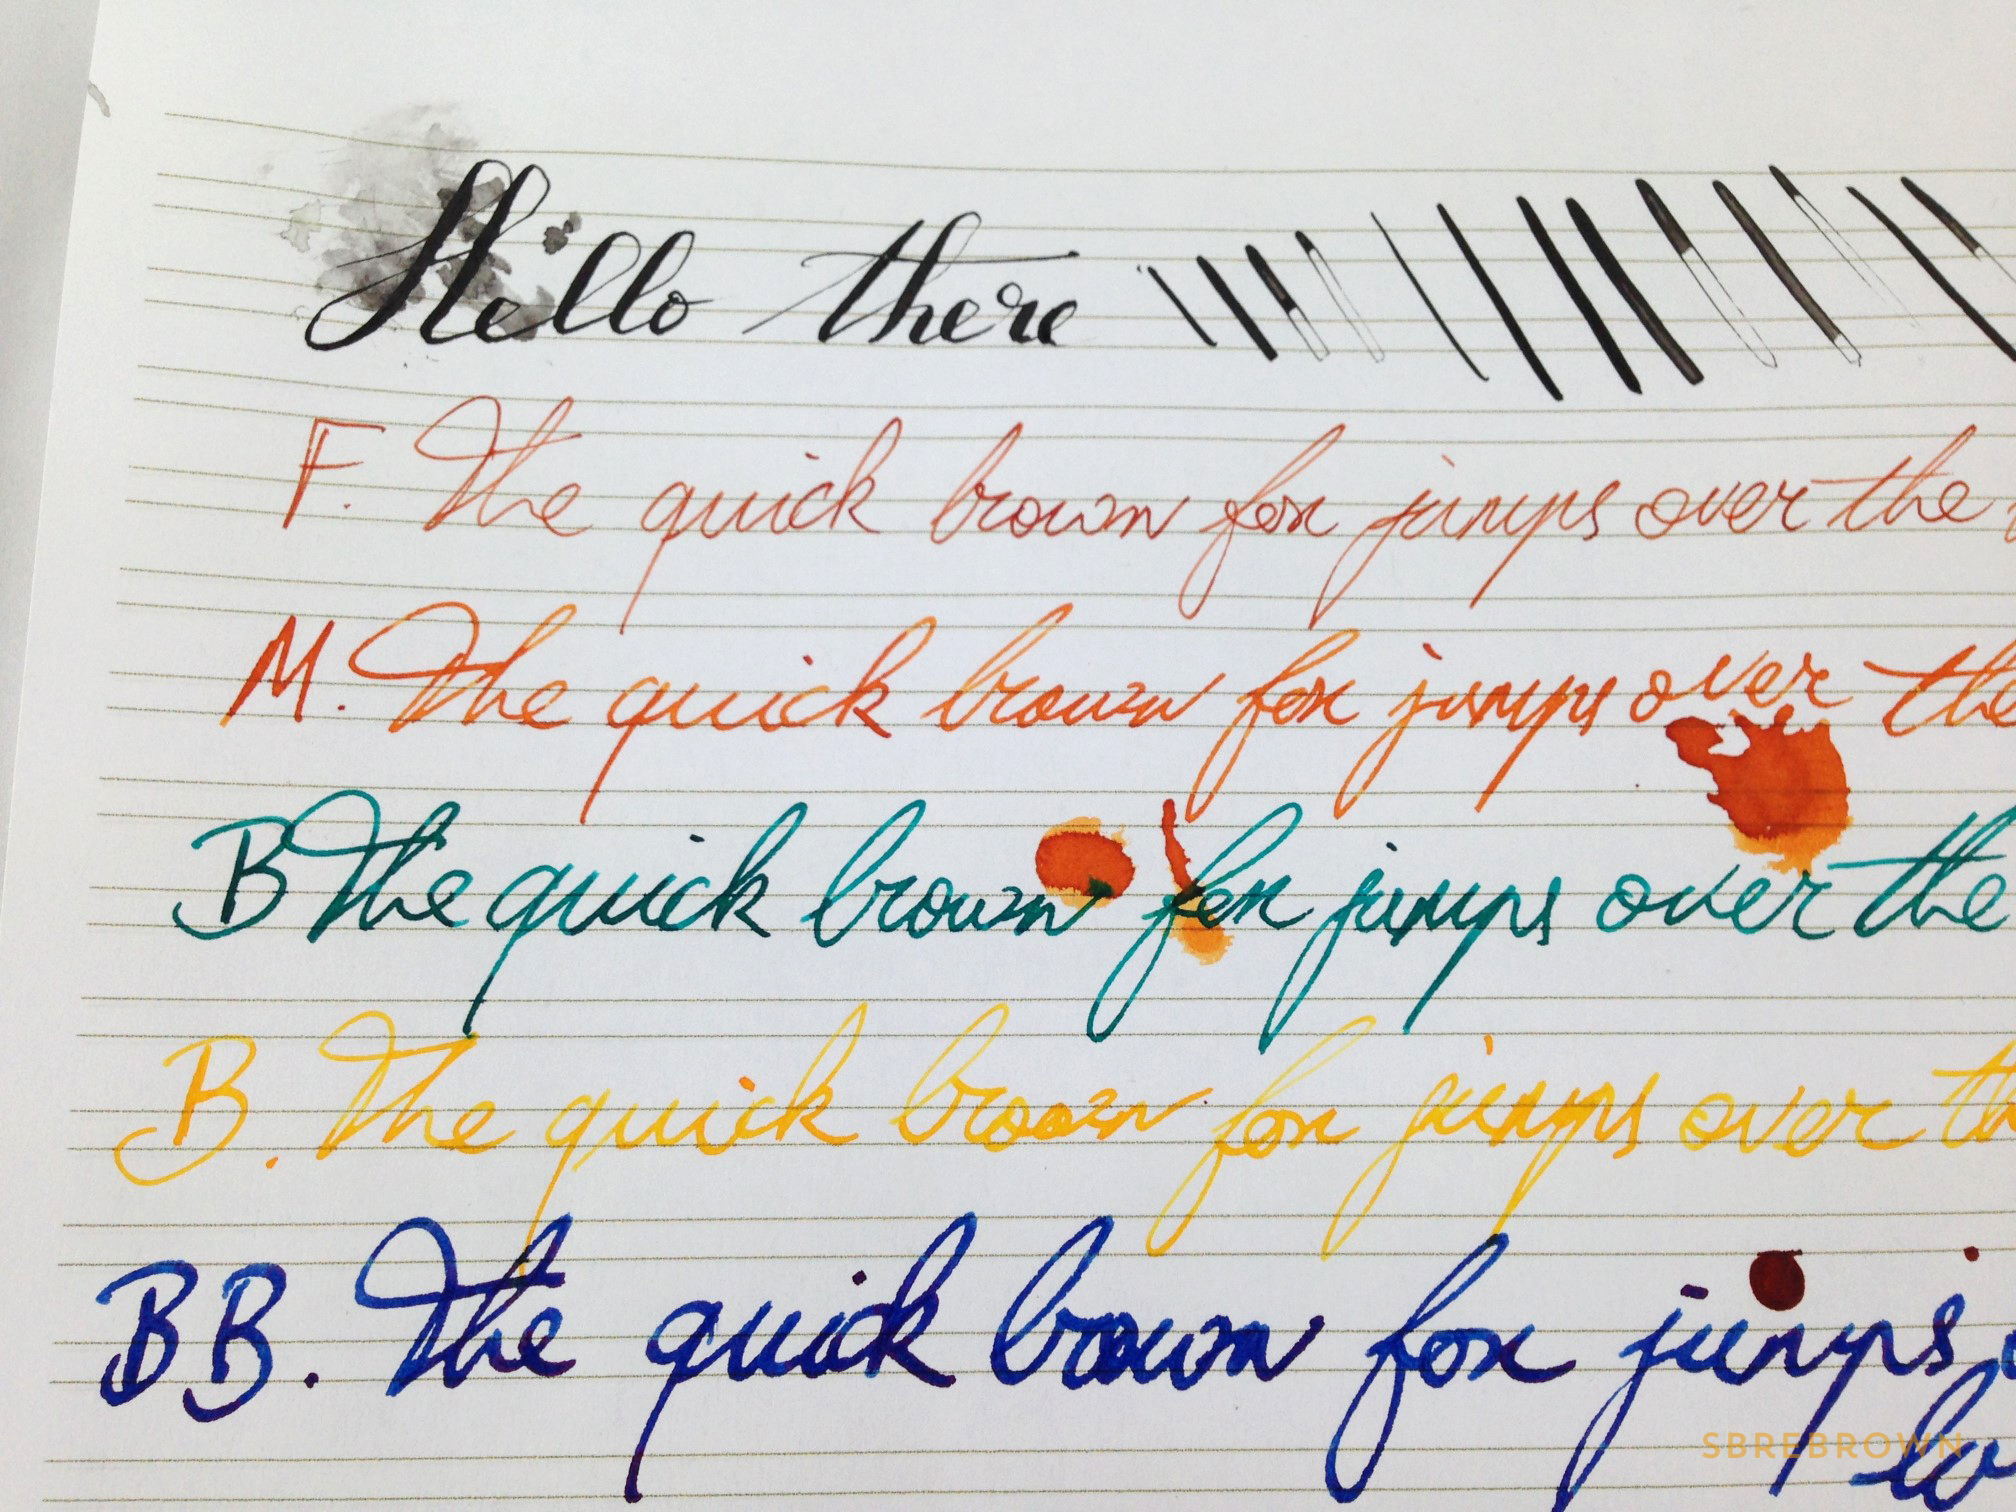 Hello there
F. The quick brown fox jumps over the
M. The quick brown fox jumps over the
B The quick brown fox jumps over the
B. The quick brown fox jumps over th
BB. The quick brown fox jumps
SBREBROWN